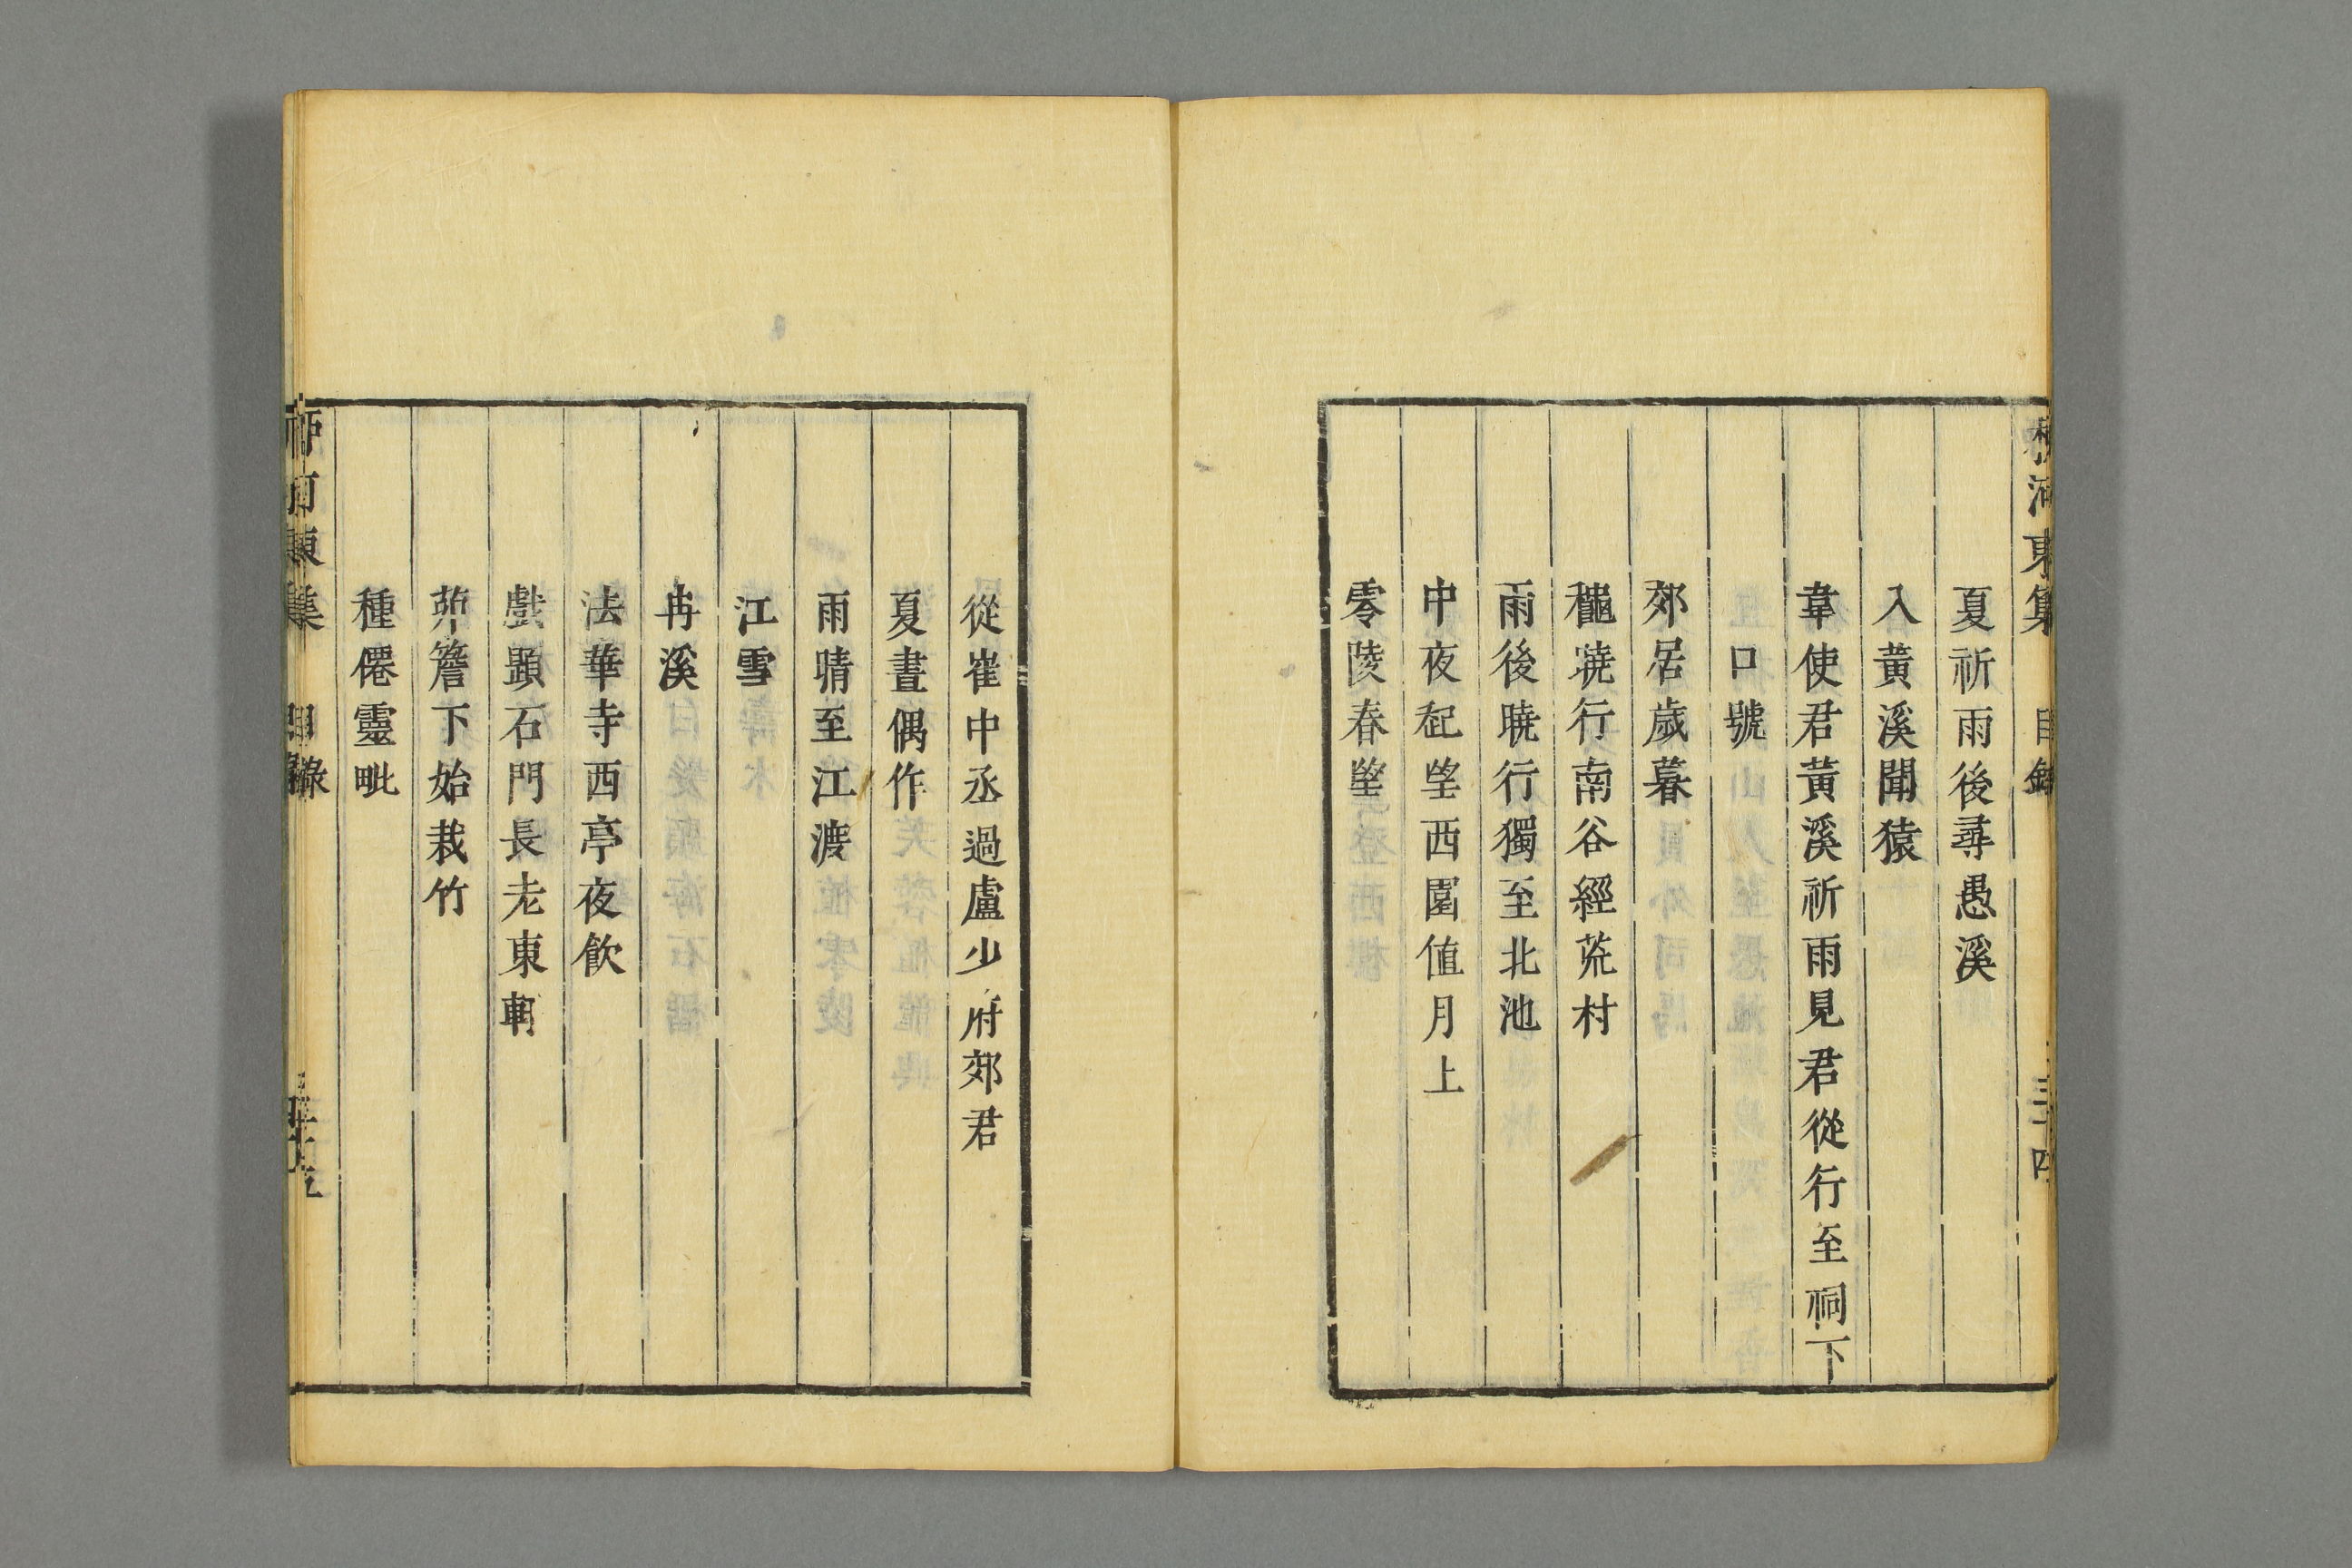 柳河東集 目錄 三十四
夏祈雨後尋愚溪
入黃溪聞猿
韋使君黃溪祈雨見君從行至祠下
口號
郊居歲暮
龝曉行南谷經荒村
雨後曉行獨至北池
中夜起望西園值月上
零陵春望
從崔中丞過盧少府郊君
夏晝偶作
雨晴至江渡
江雪
冉溪
法華寺西亭夜飮
戲題石門長老東軒
茆簷下始栽竹
種僊靈毗
柳河東集 目錄 三十五